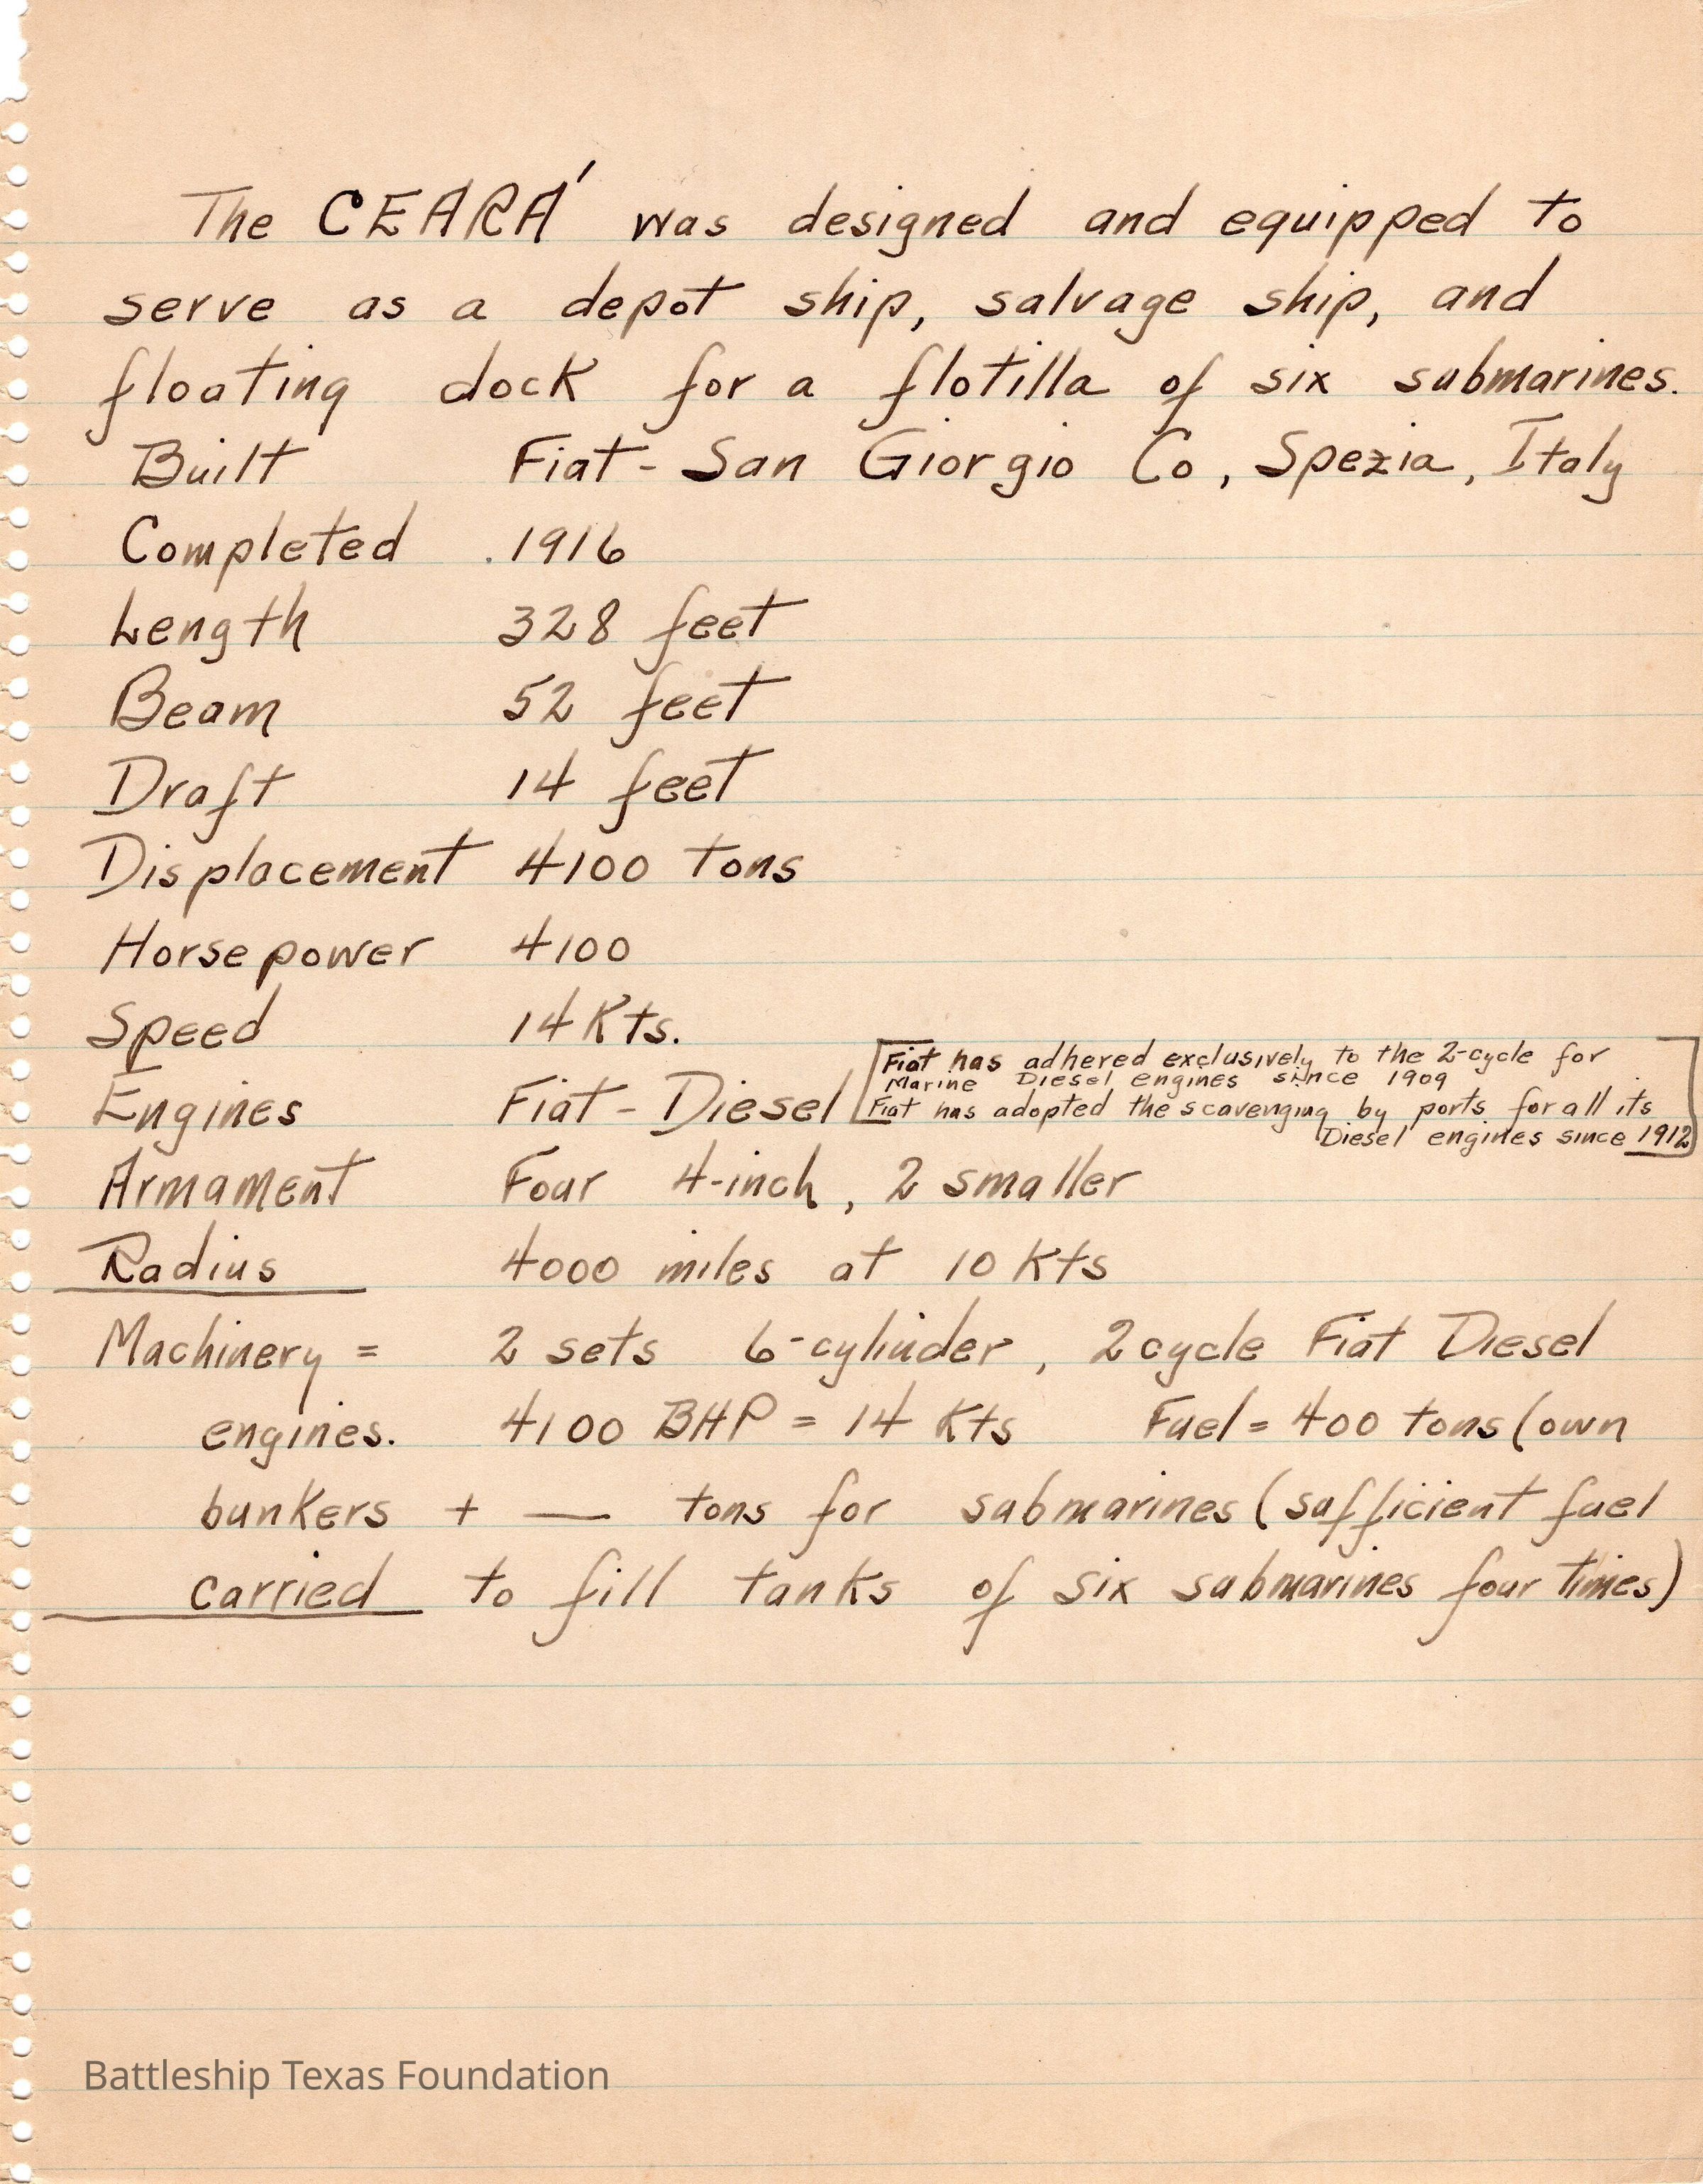 The CEARÁ was designed and equipped to
serve as a depot ship, salvage ship, and
floating dock for a flotilla of six submarines.
Built Fiat - San Giorgio Co, Spezia, Italy
Completed .1916
Length 328 feet
Beam 52 feet
Draft 14 feet
Displacement 4100 tons
Horsepower 4100
Speed 14 Kts.
Engines Fiat - Diesel [Fiat has adhered exclusively to the 2-cycle for
Marine Diesel engines since 1909
Fiat has adopted the scavenging by ports for all its
Diesel engines since 1912]
Armament Four 4-inch, 2 smaller
Radius 4000 miles at 10 Kts
Machinery = 2 sets 6-cylinder, 2 cycle Fiat Diesel
engines. 4100 BHP = 14 Kts Fuel = 400 tons (own
bunkers + — tons for submarines (sufficient fuel
carried to fill tanks of six submarines four times)
Battleship Texas Foundation